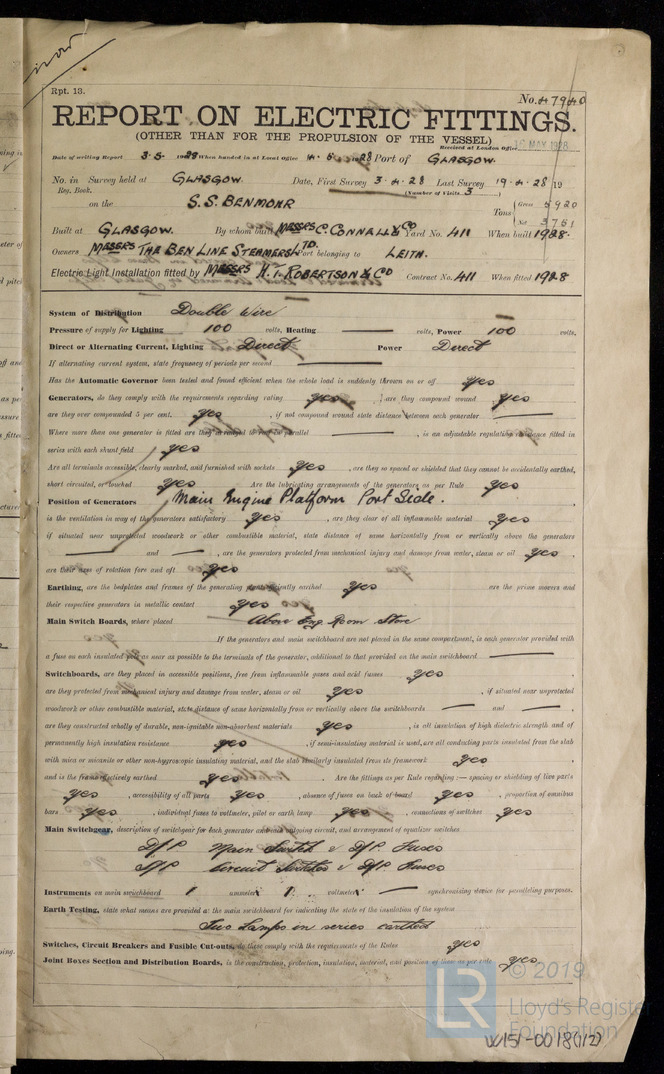 Rpt. 13.
No. 47940
REPORT ON ELECTRIC FITTINGS.
(OTHER THAN FOR THE PROPULSION OF THE VESSEL)
Received at London Office 16 MAY 1928
Date of writing Report 3.5. 1928 When handed in at Local Office 4. 5. 1928 Port of GLASGOW.
No. in Survey held at GLASGOW. Date, First Survey 3.4.28 Last Survey 19.4.28 19
Reg. Book. (Number of Visits 3)
on the S.S. BENMOHR Tons { Gross 5920
Net 3751
Built at GLASGOW. By whom built MESSRS C. CONNELL & CO Yard No. 411 When built 1928.
Owners MESSRS THE BEN LINE STEAMERS LTD. Port belonging to LEITH.
Electric Light Installation fitted by MESSRS H. T. ROBERTSON & CO Contract No. 411 When fitted 1928
System of Distribution Double Wire
Pressure of supply for Lighting 100 volts, Heating — volts, Power 100 volts,
Direct or Alternating Current, Lighting Direct Power Direct
If alternating current system, state frequency of periods per second —
Has the Automatic Governor been tested and found efficient when the whole load is suddenly thrown on or off yes
Generators, do they comply with the requirements regarding rating yes, are they compound wound yes
are they over compounded 5 per cent. yes, if not compound wound state distance between each generator —
Where more than one generator is fitted are they arranged to run in parallel —, is an adjustable regulating resistance fitted in
series with each shunt field yes
Are all terminals accessible, clearly marked, and furnished with sockets yes, are they so spaced or shielded that they cannot be accidentally earthed,
short circuited, or touched yes Are the lubricating arrangements of the generators as per Rule yes
Position of Generators Main Engine Platform Port Side.
is the ventilation in way of the generators satisfactory yes, are they clear of all inflammable material yes
if situated near unprotected woodwork or other combustible material, state distance of same horizontally from or vertically above the generators
— and —, are the generators protected from mechanical injury and damage from water, steam or oil yes,
are their axes of rotation fore and aft yes
Earthing, are the bedplates and frames of the generating plant efficiently earthed yes are the prime movers and
their respective generators in metallic contact yes
Main Switch Boards, where placed Above Eng Room Store
If the generators and main switchboard are not placed in the same compartment, is each generator provided with
a fuse on each insulated pole as near as possible to the terminals of the generator, additional to that provided on the main switchboard —
Switchboards, are they placed in accessible positions, free from inflammable gases and acid fumes yes
are they protected from mechanical injury and damage from water, steam or oil yes, if situated near unprotected
woodwork or other combustible material, state distance of same horizontally from or vertically above the switchboards — and —,
are they constructed wholly of durable, non-ignitable non-absorbent materials yes, is all insulation of high dielectric strength and of
permanently high insulation resistance yes, if semi-insulating material is used, are all conducting parts insulated from the slab
with mica or micanite or other non-hygroscopic insulating material, and the slab similarly insulated from its framework yes
and is the frame effectively earthed yes. Are the fittings as per Rule regarding :— spacing or shielding of live parts
yes, accessibility of all parts yes, absence of fuses on back of board yes, proportion of omnibus
bars yes, individual fuses to voltmeter, pilot or earth lamp yes, connections of switches yes
Main Switchgear, description of switchgear for each generator and each outgoing circuit, and arrangement of equalizer switches
D/P Main Switch & D/P Fuses
S/P Circuit Switches & D/P Fuses
Instruments on main switchboard 1 ammeter 1 voltmeter — synchronising device for paralleling purposes.
Earth Testing, state what means are provided at the main switchboard for indicating the state of the insulation of the system
Two Lamps in series earthed
Switches, Circuit Breakers and Fusible Cut-outs, do these comply with the requirements of the Rules yes
Joint Boxes Section and Distribution Boards, is the construction, protection, insulation, material, and position of these as per rule yes
LR © 2019
Lloyd's Register
Foundation
W151-0018(1/2)